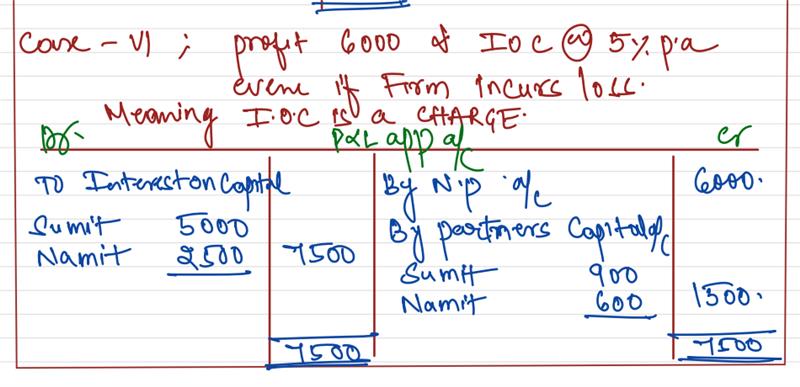 Case - VI ; profit 6000 & IOC @ 5% p.a
even if Firm incurs loss.
Meaning I.O.C is a CHARGE.
Dr. P&L app a/c Cr
To Interest on Capital By N.p a/c 6000.
Sumit 5000 By partners Capital a/c
Namit 2500 7500 Sumit 900
Namit 600 1500.
7500 7500